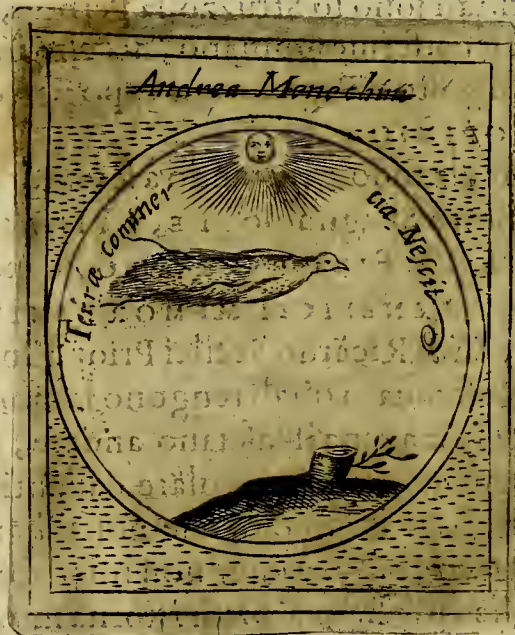 Andrea Menechini
Terræ Commer
cia Nescit